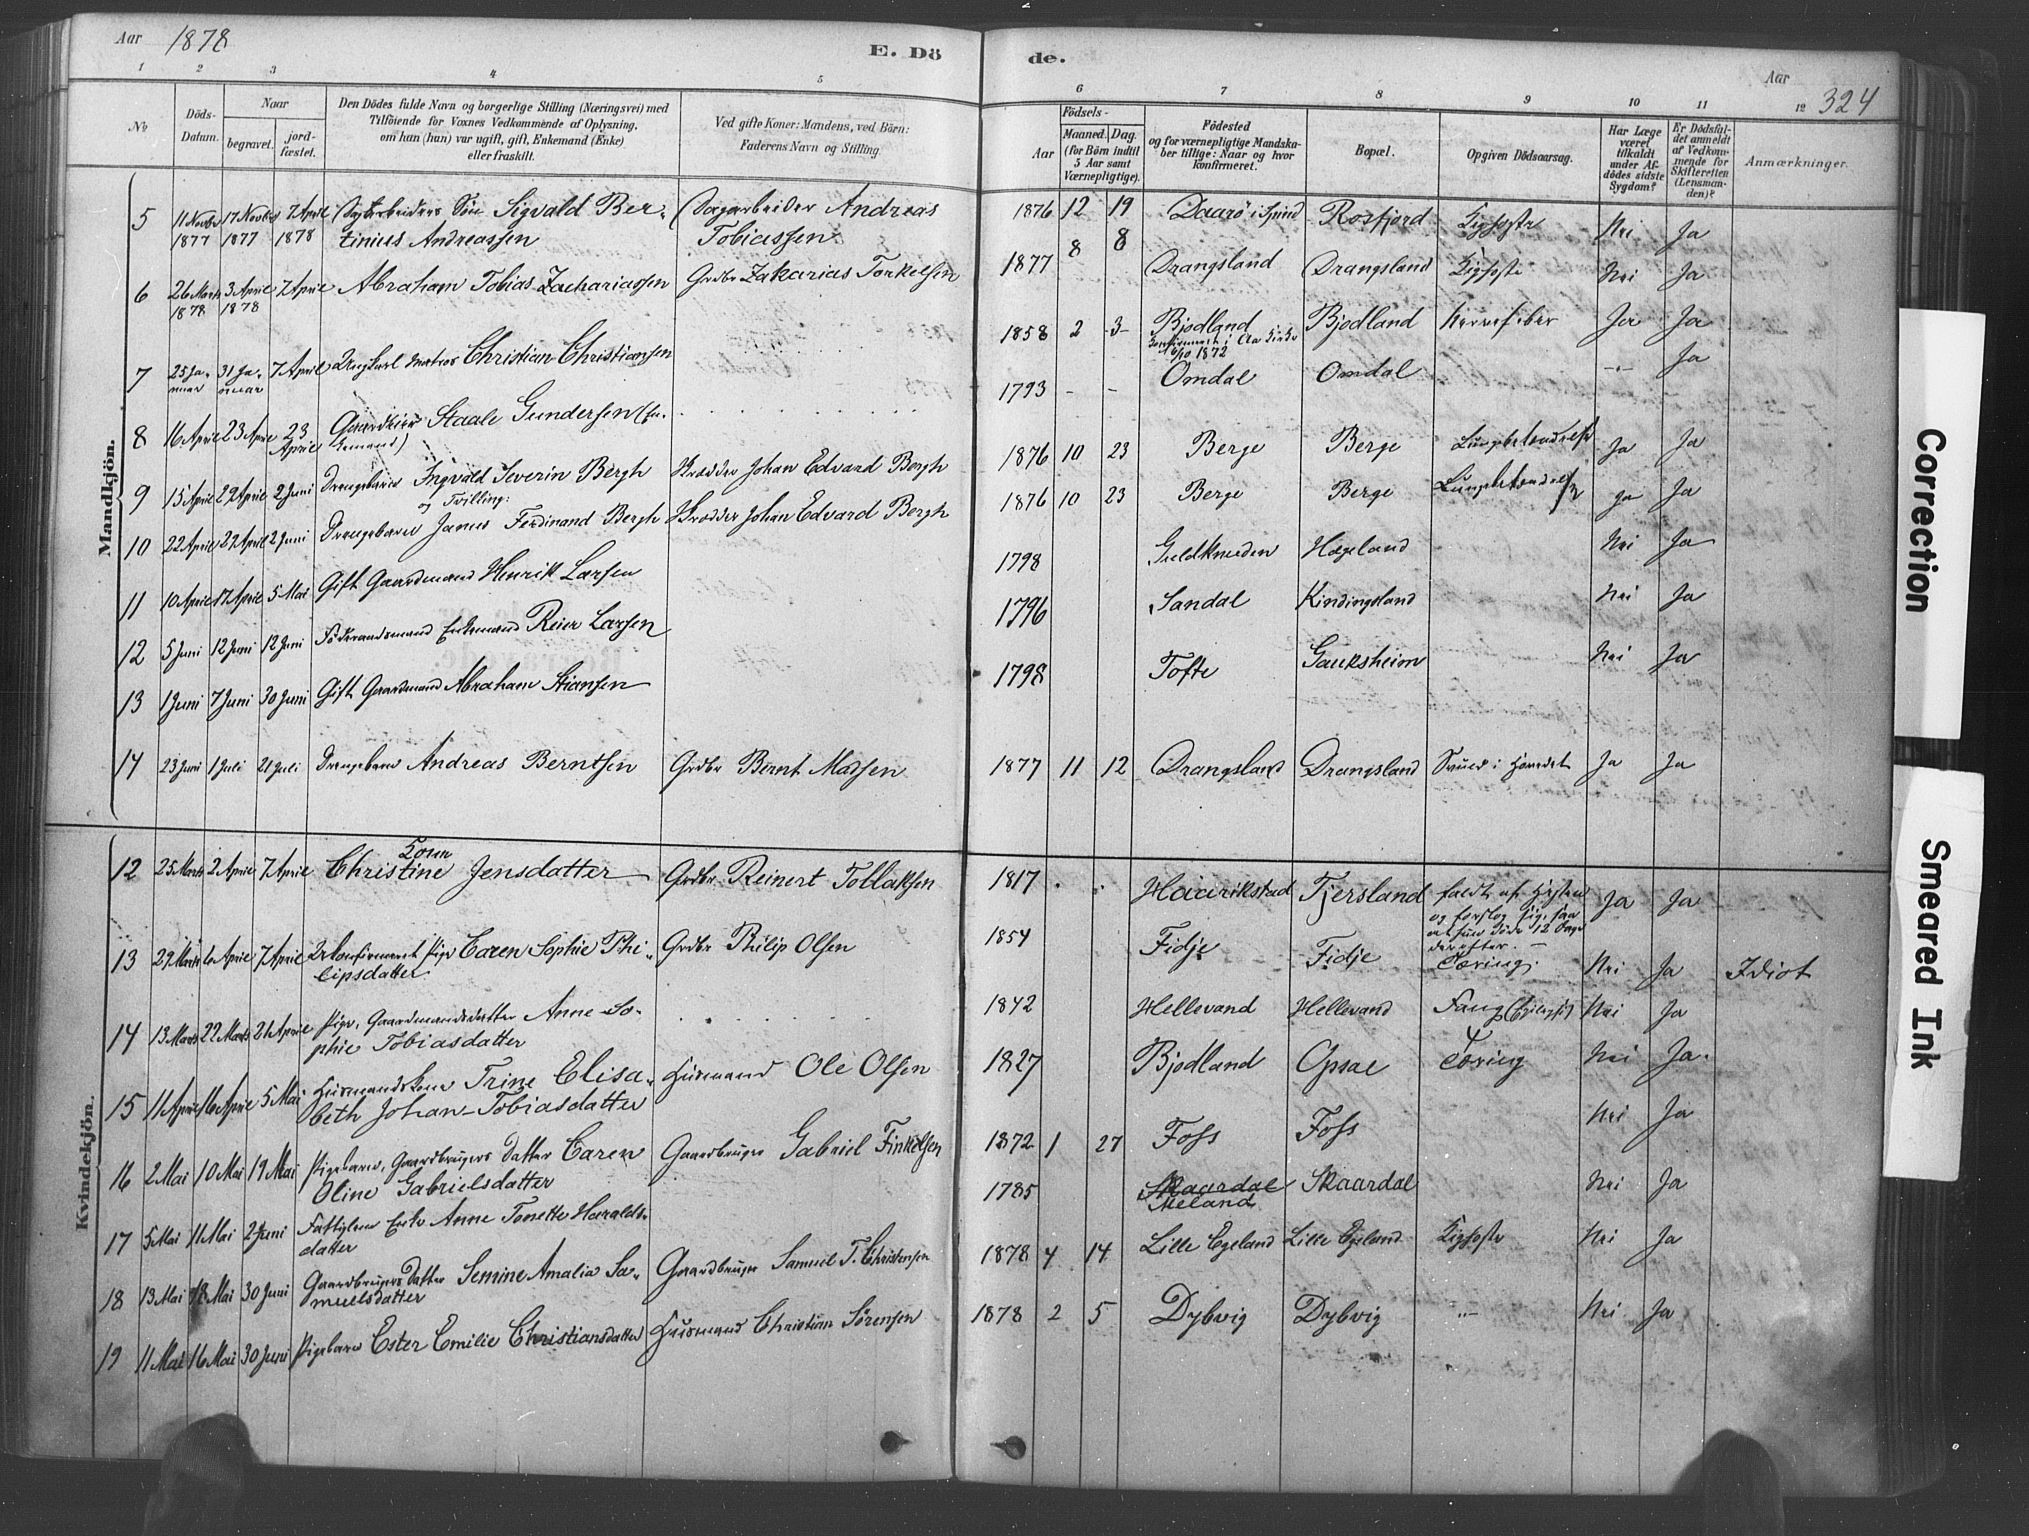 Aar 1878
E. Dö
de.
Aar
324
1 2 3 4 5
6 7 8 9 10 11 12
No
Döds-
Datum.
Naar
begravet.
jord-
fæstet.
Den Dödes fulde Navn og borgerlige Stilling (Næringsvei) med
Tilföiende for Voxnes Vedkommende af Oplysning,
om han (hun) var ugift, gift, Enkemand (Enke)
eller fraskilt.
Ved gifte Koner: Mandens, ved Börn:
Faderens Navn og Stilling.
Födsels-
Aar
Maaned. Dag.
(for Börn indtil
5 Aar samt
Værnepligtige).
Födested
og for værnepligtige Mandska-
ber tillige: Naar og hvor
konfirmeret.
Bopæl.
Opgiven Dödsaarsag.
Har Læge
været
tilkaldt
under Af-
dödes sidste
Sygdom?
Er Dödsfal-
det anmeldt
af Vedkom-
mende for
Skifteretten
(Lensman-
den)?
Anmærkninger.
Mandkjön.
5 11 Novbr 17 Novbr 7 April Søn Sigvald Ber- Sagarbeider Andreas 1876 12 19 Daarø i Spind Rosfjord Kighoste Nei Ja
1877 1877 1878 tinius Andreassen Tobiassen
6 26 Marts 3 April 7 April Abraham Tobias Zachariassen Grdbr Zakarias Torkelsen 1877 8 8 Drangsland Drangsland Kighoste Nei Ja
1878 1878
7 25 Ja- 31 Ja- 7 April Ungkarl Matros Christian Christiansen 1858 2 3 Bjodland Bjodland Nervefeber Ja Ja
nuar nuar 1872
8 16 April 23 April 23 April Staale Gundersen (En- 1793 - - Omdal Omdal Ja
kemand)
9 15 April 22 April 2 Juni Drengebarn Ingvald Severin Bergh Skrædder Johan Edvard Bergh 1876 10 23 Berge Berge Lungebetændelse Ja Ja
og Tvilling:
10 22 April 29 April 2 Juni Drengebarn Janus Ferdinand Bergh Skrædder Johan Edvard Bergh 1876 10 23 Berge Berge Lungebetændelse Ja Ja
11 10 April 17 April 5 Mai Gift Gaardmand Henrik Larsen 1798 Guldknuden Hægeland Nei Ja
12 5 Juni 12 Juni 12 Juni Föderaadsmand Enkemand Reier Larsen 1796 Sandal Kindingsland Nei Ja
13 1 Juni 7 Juni 30 Juni Gift Gaardmand Abraham Stiansen 1798 Tofte Gauksheim Nei Ja
14 23 Juni 1 Juli 21 Juli Drengebarn Andreas Berntsen Grdbr Bernt Madsen 1877 11 12 Drangsland Drangsland i Hovedet Ja Ja
Kvindekjön.
Kone
12 25 Marts 2 April 7 April Christine Jensdatter Grdbr Reinert Tollaksen 1817 Haarikstad Tjersland faldt af Hesten Ja Ja
og forslog sig, saa
at hun døde 12 Dage
derefter.
13 29 Marts 6 April 7 April Ukonfirmeret Pige Caren Sophie Phi- Grdbr Philip Olsen 1854 Fidje Fidje Tæring Nei Ja Idiot
lipsdatter
14 13 Marts 22 Marts 21 April Pige, Gaardmandsdatter Anne So- 1842 Hellevand Hellevand Nei Ja
phie Tobiasdatter
15 11 April 16 April 5 Mai Husmandskone Trine Elisa- Husmand Ole Olsen 1827 Bjodland Opsal Tæring Nei Ja
beth Johan-Tobiasdatter
16 2 Mai 10 Mai 19 Mai Pigebarn, Gaardbrugers Datter Caren Gaardbruger Gabriel Finkelsen 1872 1 27 Foss Foss Nei Ja
Oline Gabrielsdatter
17 5 Mai 11 Mai 2 Juni Fattiglem Enke Anne Tonette Haralds- 1785 Skaardal Skaardal Nei Ja
datter
18 13 Mai 18 Mai 30 Juni Gaardbrugers Datter Semine Amalia Sa- Gaardbruger Samuel T. Christensen 1878 4 14 Lille Egeland Lille Egeland Kighoste Nei Ja
muelsdatter
19 11 Mai 16 Mai 30 Juni Pigebarn Ester Emilie Christiansdatter Husmand Christian Sørensen 1878 2 5 Dybvig Dybvig -"- Nei Ja
Correction
Smeared Ink